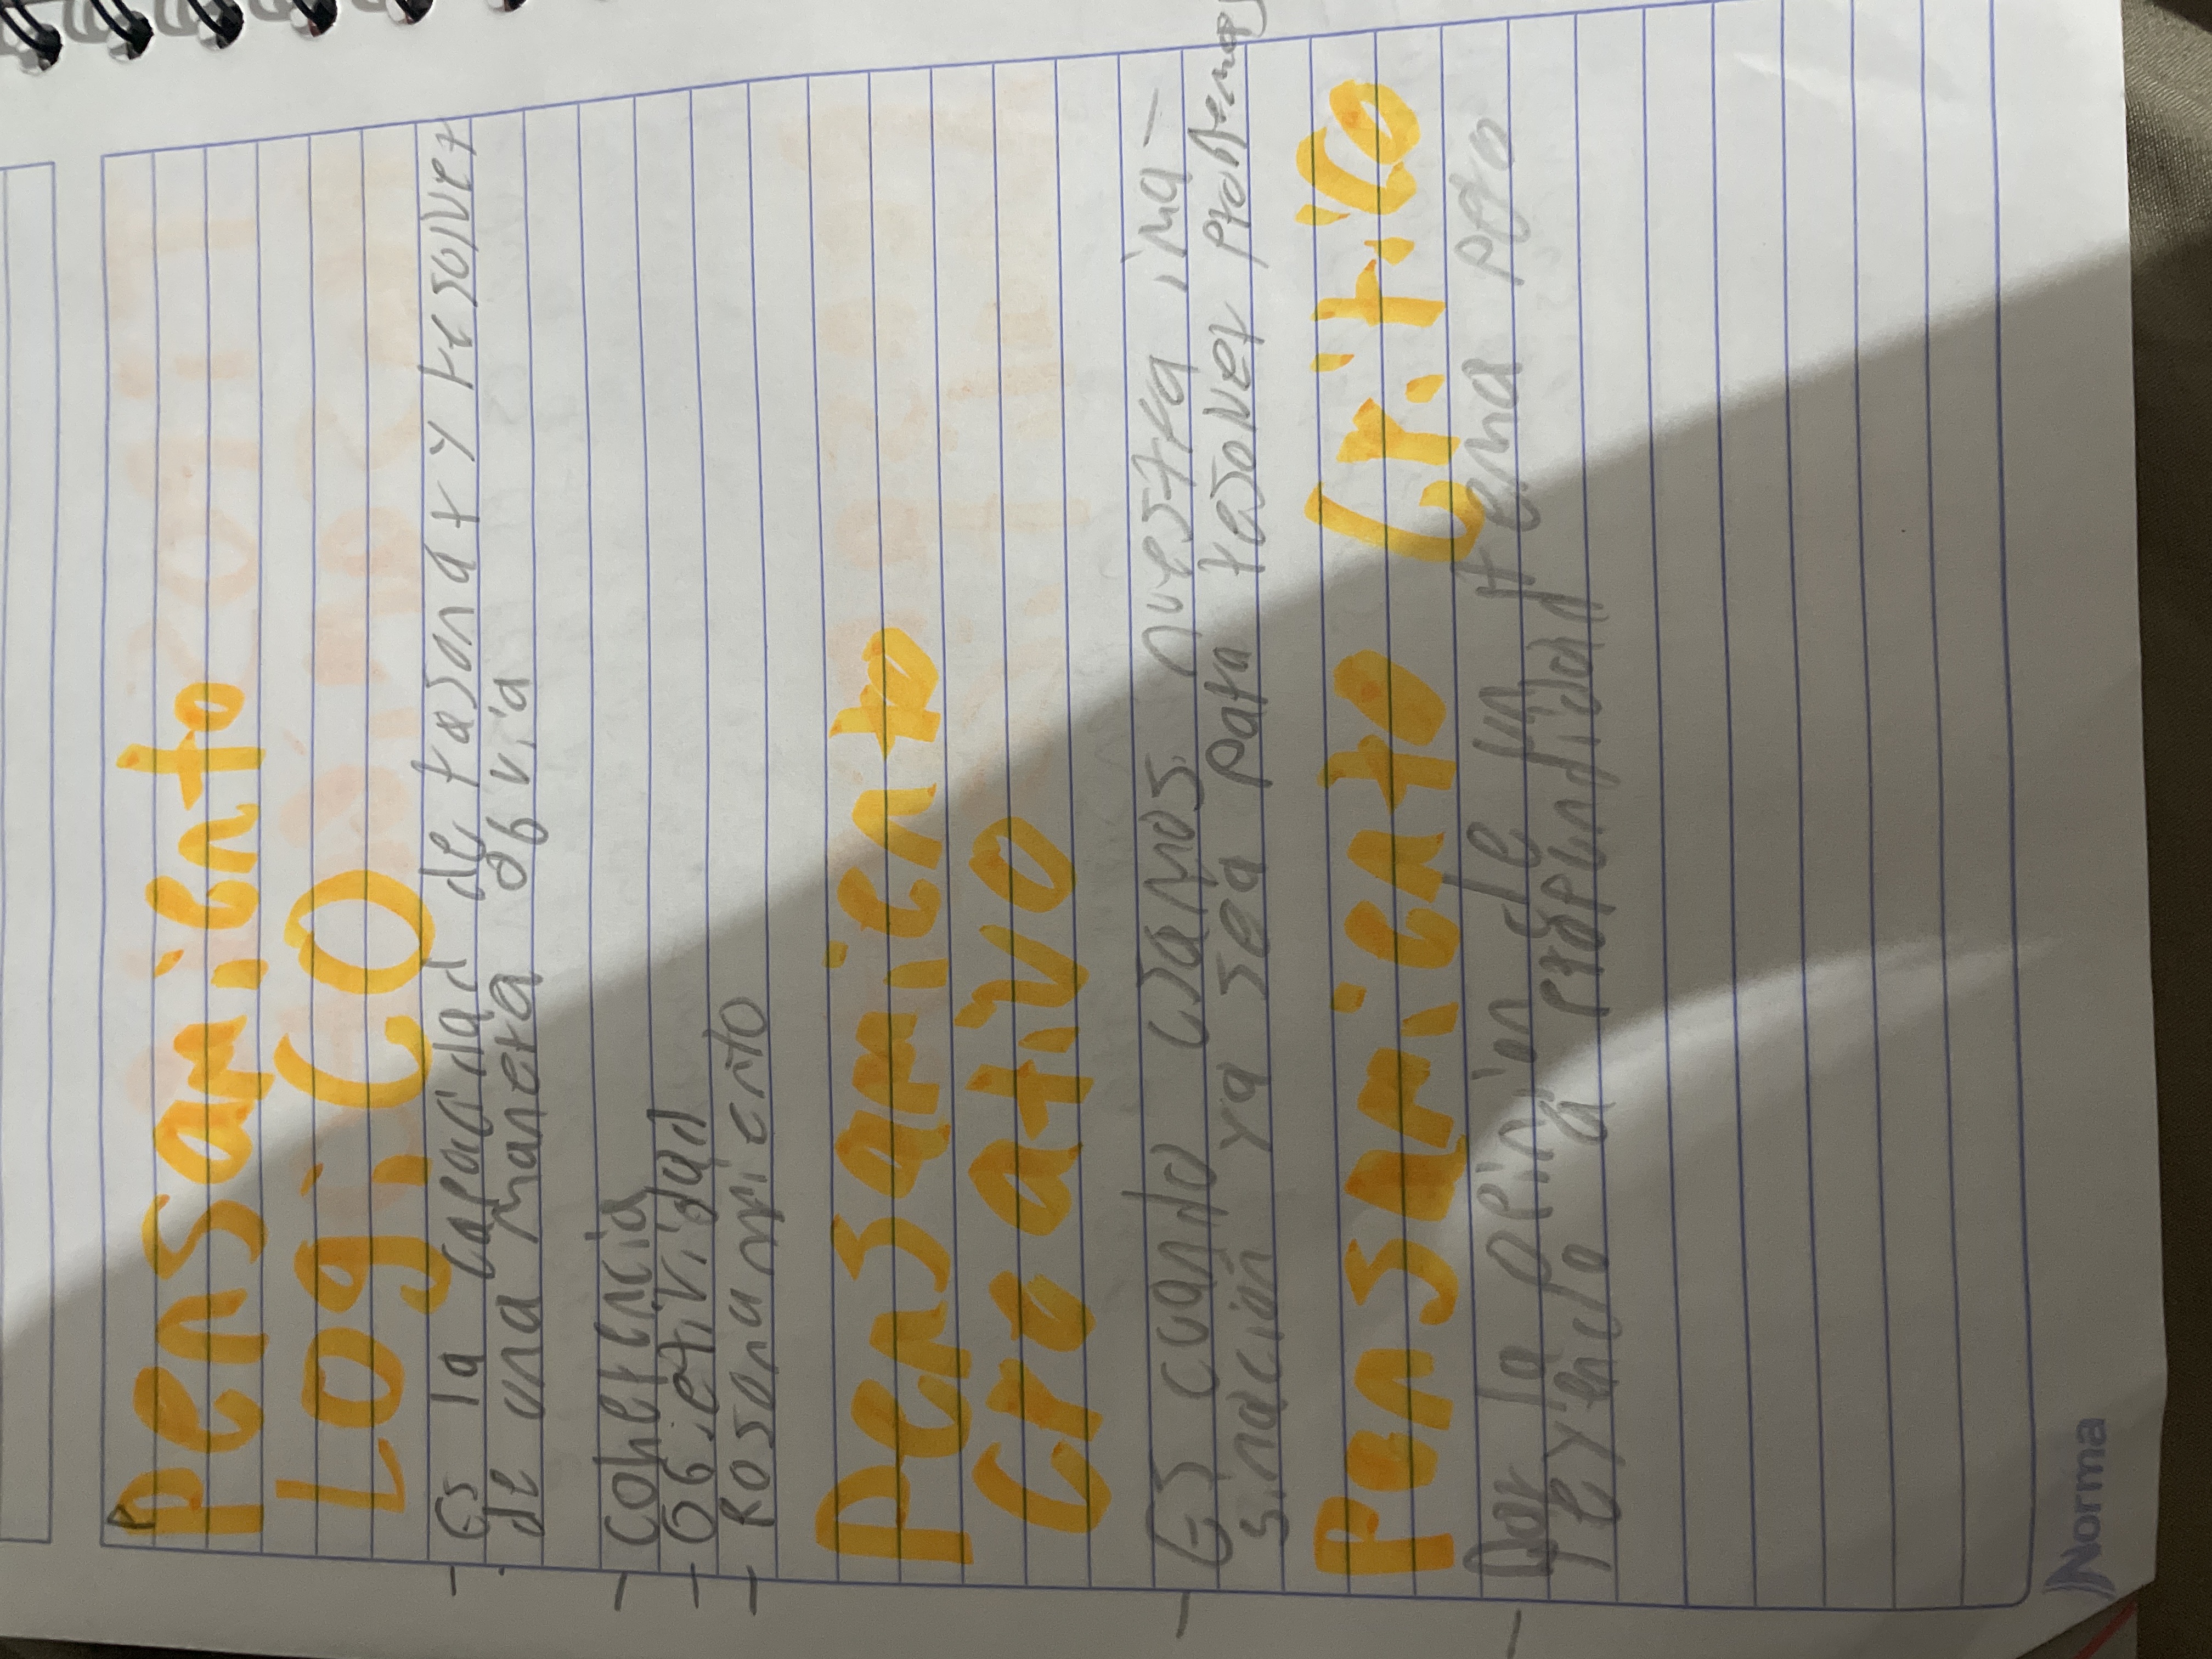 P
Pensamiento
Logico
- Es la capacidad de rasonar y resolver
de una manera obvia
- coherencia
- Objetividad
- Rosanamiento
Pensamiento
Creativo
- Es cuando usamos nuestra ima-
sinación ya sea para resolver problemas
Pensamiento Critico
- Dar la opinion de un tema pero
leyendo a profundidad
Norma